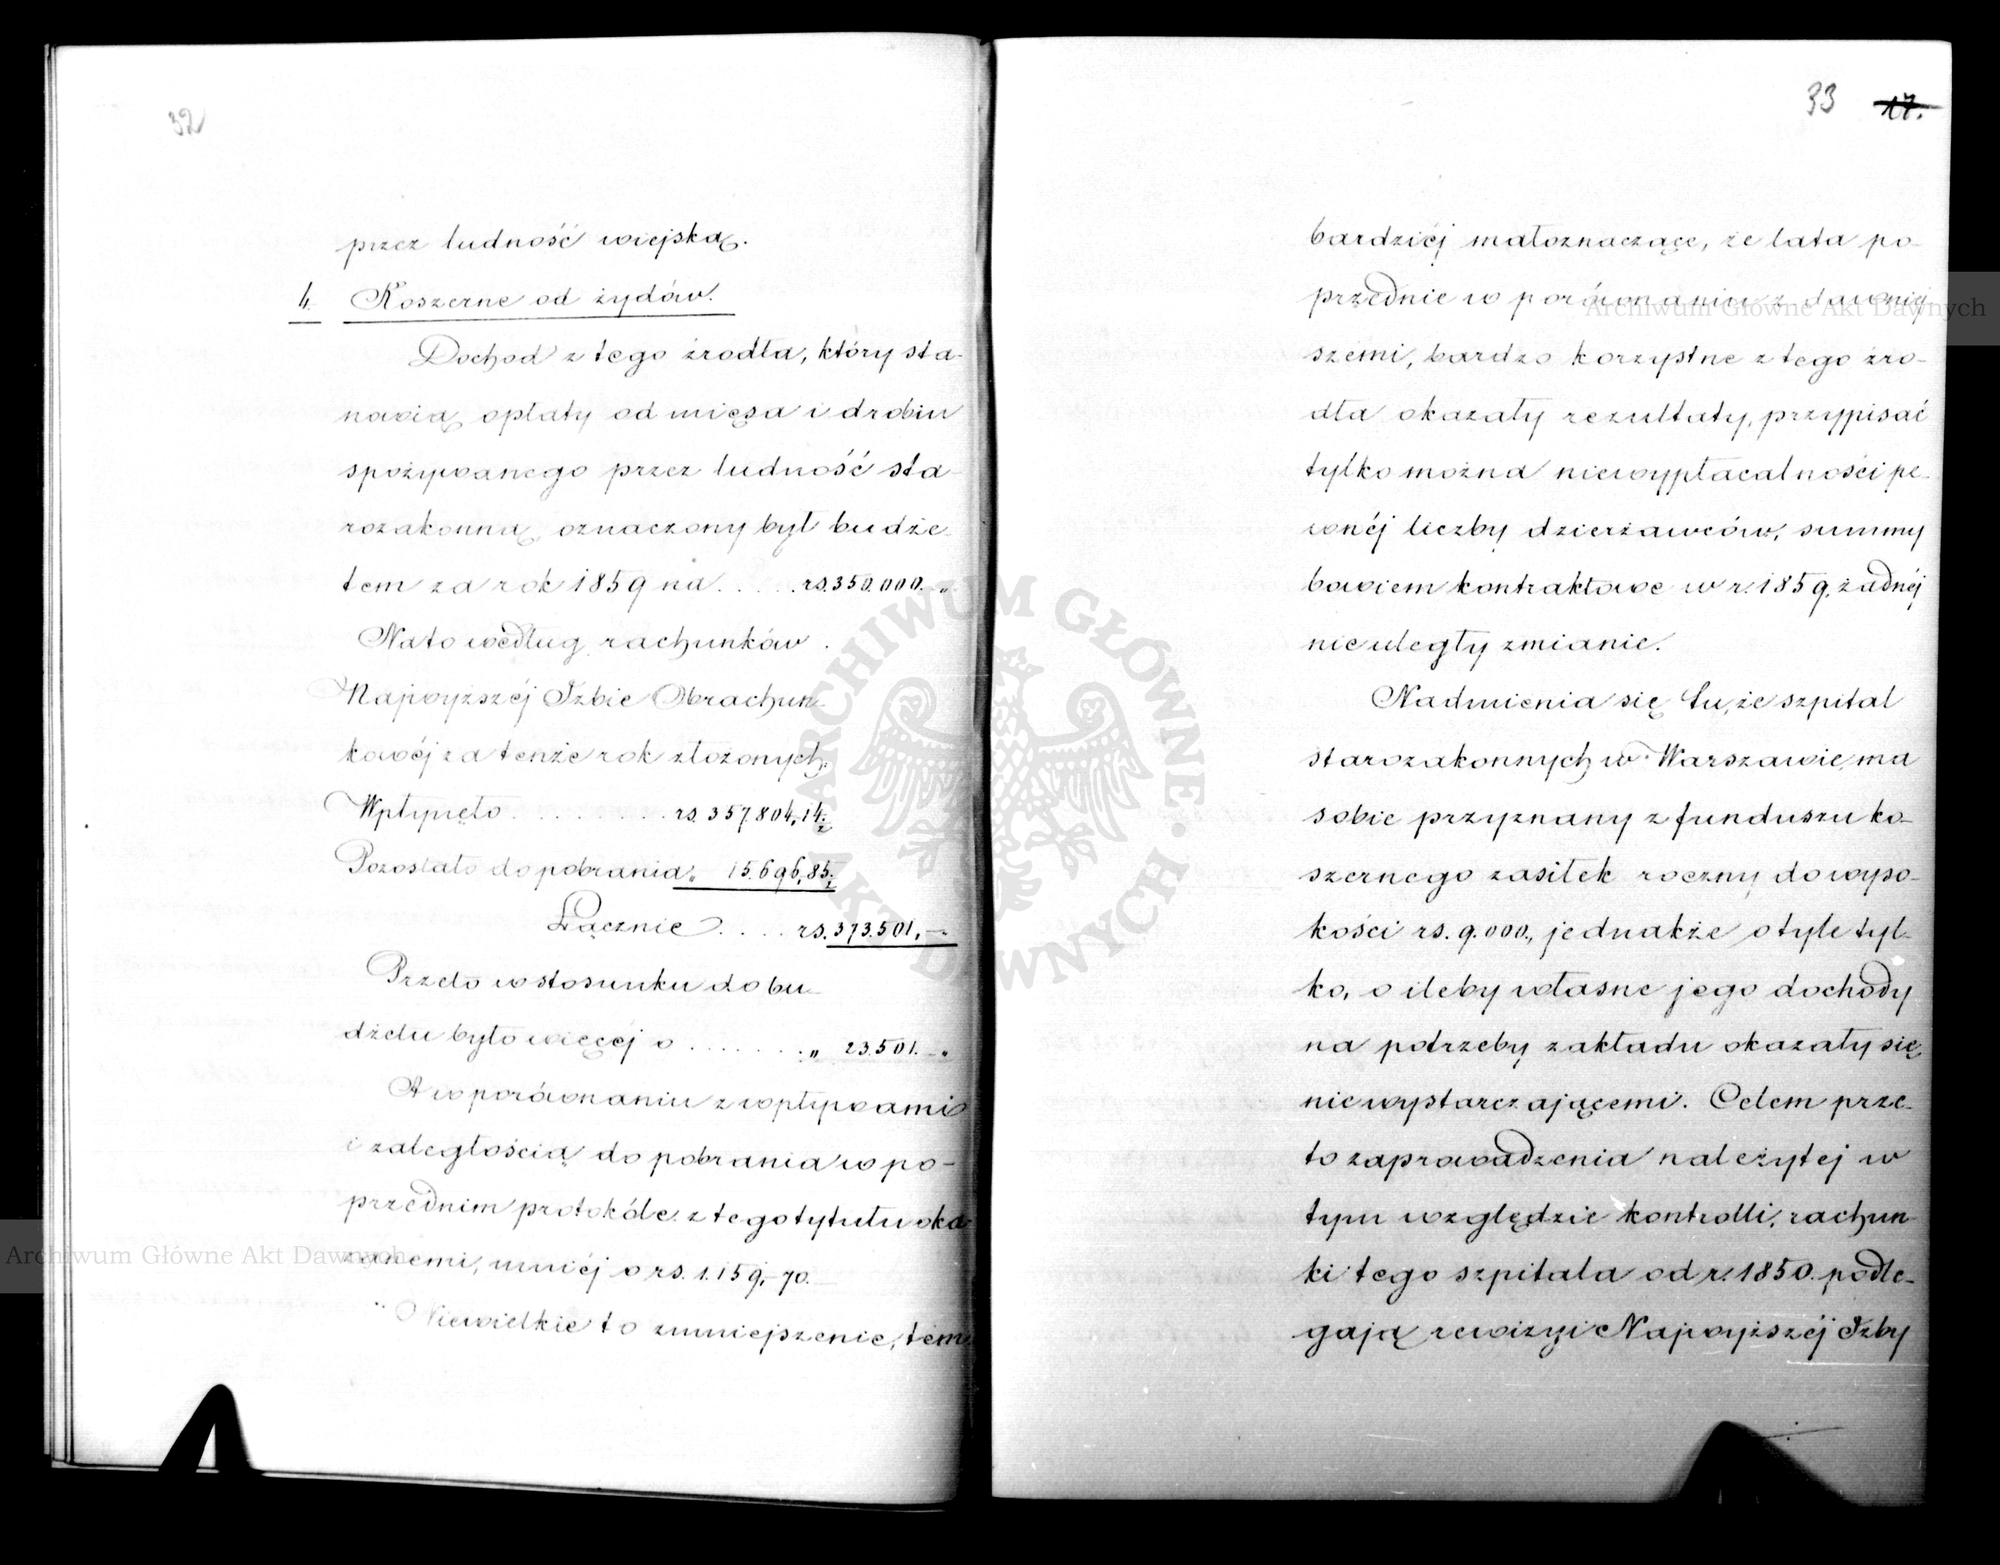 32
przez ludność wiejską.
4. Koszerne od żydów.
Dochod z tego źrodła, który sta-
nowią opłaty od mięsa i drobiu
spożywanego przez ludność sta-
rozakonną oznaczony był budże-
tem za rok 1859 na . . . . . rs. 350.000. „
Na to według rachunków
Najwyższéj Izbie Obrachun-
kowéj za tenże rok złożonych:
Wpłynęło . . . . . . . . . rs. 357.804,14½
Pozostało do pobrania „ 15.696,85½
Łącznie . . . . rs. 373.501,—
Przeto w stosunku do bu-
dżetu było więcéj o . . . . . . . „ 23.501. „
A w porównaniu z wpływami
i zaległością do pobrania w po-
przednim protokóle z tego tytułu oka-
zanemi, mniéj o rs. 1.159,70.
Niewielkie to zmniejszenie, tém
33 17.
bardziéj małoznaczące, że lata po-
przednie w porównaniu z dawniej-
szemi, bardzo korzystne z tego źro-
dła okazały rezultaty, przypisać
tylko można niewypłacalności pe-
wnéj liczby dzierżawców, summy
bowiem kontraktowe w r. 1859, żadnéj
nie uległy zmianie.
Nadmienia się tu, że szpital
starozakonnych w Warszawie, ma
sobie przyznany z funduszu ko-
szernego zasiłek roczny do wyso-
kości rs. 9.000., jednakże o tyle tyl-
ko, o ileby własne jego dochody
na potrzeby zakładu okazały się
niewystarczającemi. Celem prze-
to zaprowadzenia należytej w
tym względzie kontrolli, rachun-
ki tego szpitala od r. 1850. podle-
gają rewizyi Najwyższéj Izby
Archiwum Główne Akt Dawnych
Archiwum Główne Akt Dawnych
ARCHIWUM GŁÓWNE AKT DAWNYCH